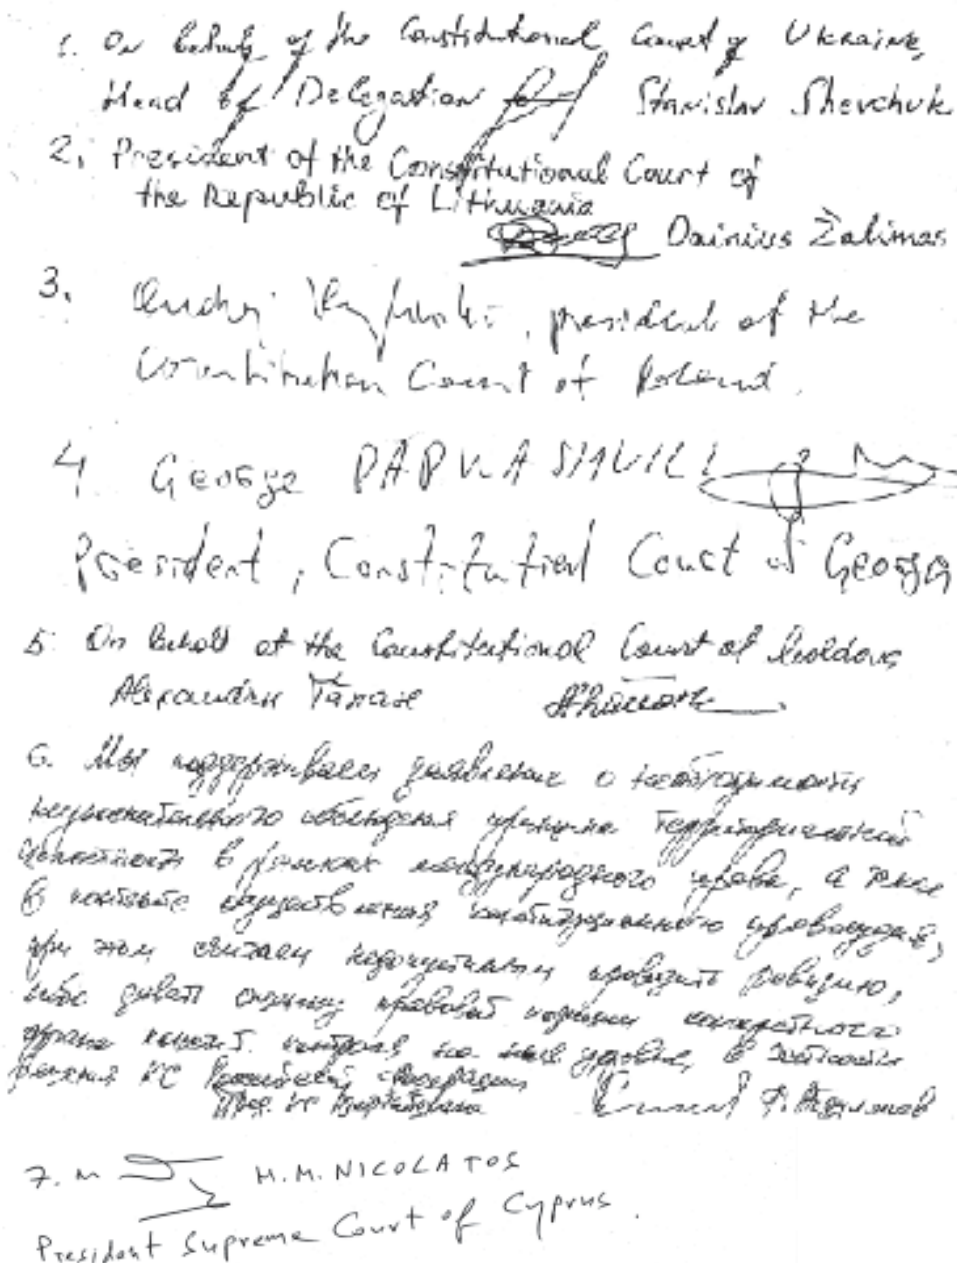 1. On behalf of the Constitutional Court of Ukraine,
Head of Delegation Stanislav Shevchuk
2. President of the Constitutional Court of
the Republic of Lithuania
Dainius Žalimas
3. president of the
Court of Poland.
4 George PAPUASHVILI
President, Constitutional Court of Georgia
5. On behalf of the Constitutional Court of Moldova
Alexandru Tănase
6. Мы поддерживаем заявление о необходимости
соблюдения принципа территориальной
целостности в рамках международного права, а также
в контексте осуществления конституционного правосудия,
при этом считаем недопустимым проводить ревизию,
либо давать оценку правовой позиции конкретного
органа контроля на
решения КС Российской Федерации
7. M H.M. NICOLATOS
President Supreme Court of Cyprus.